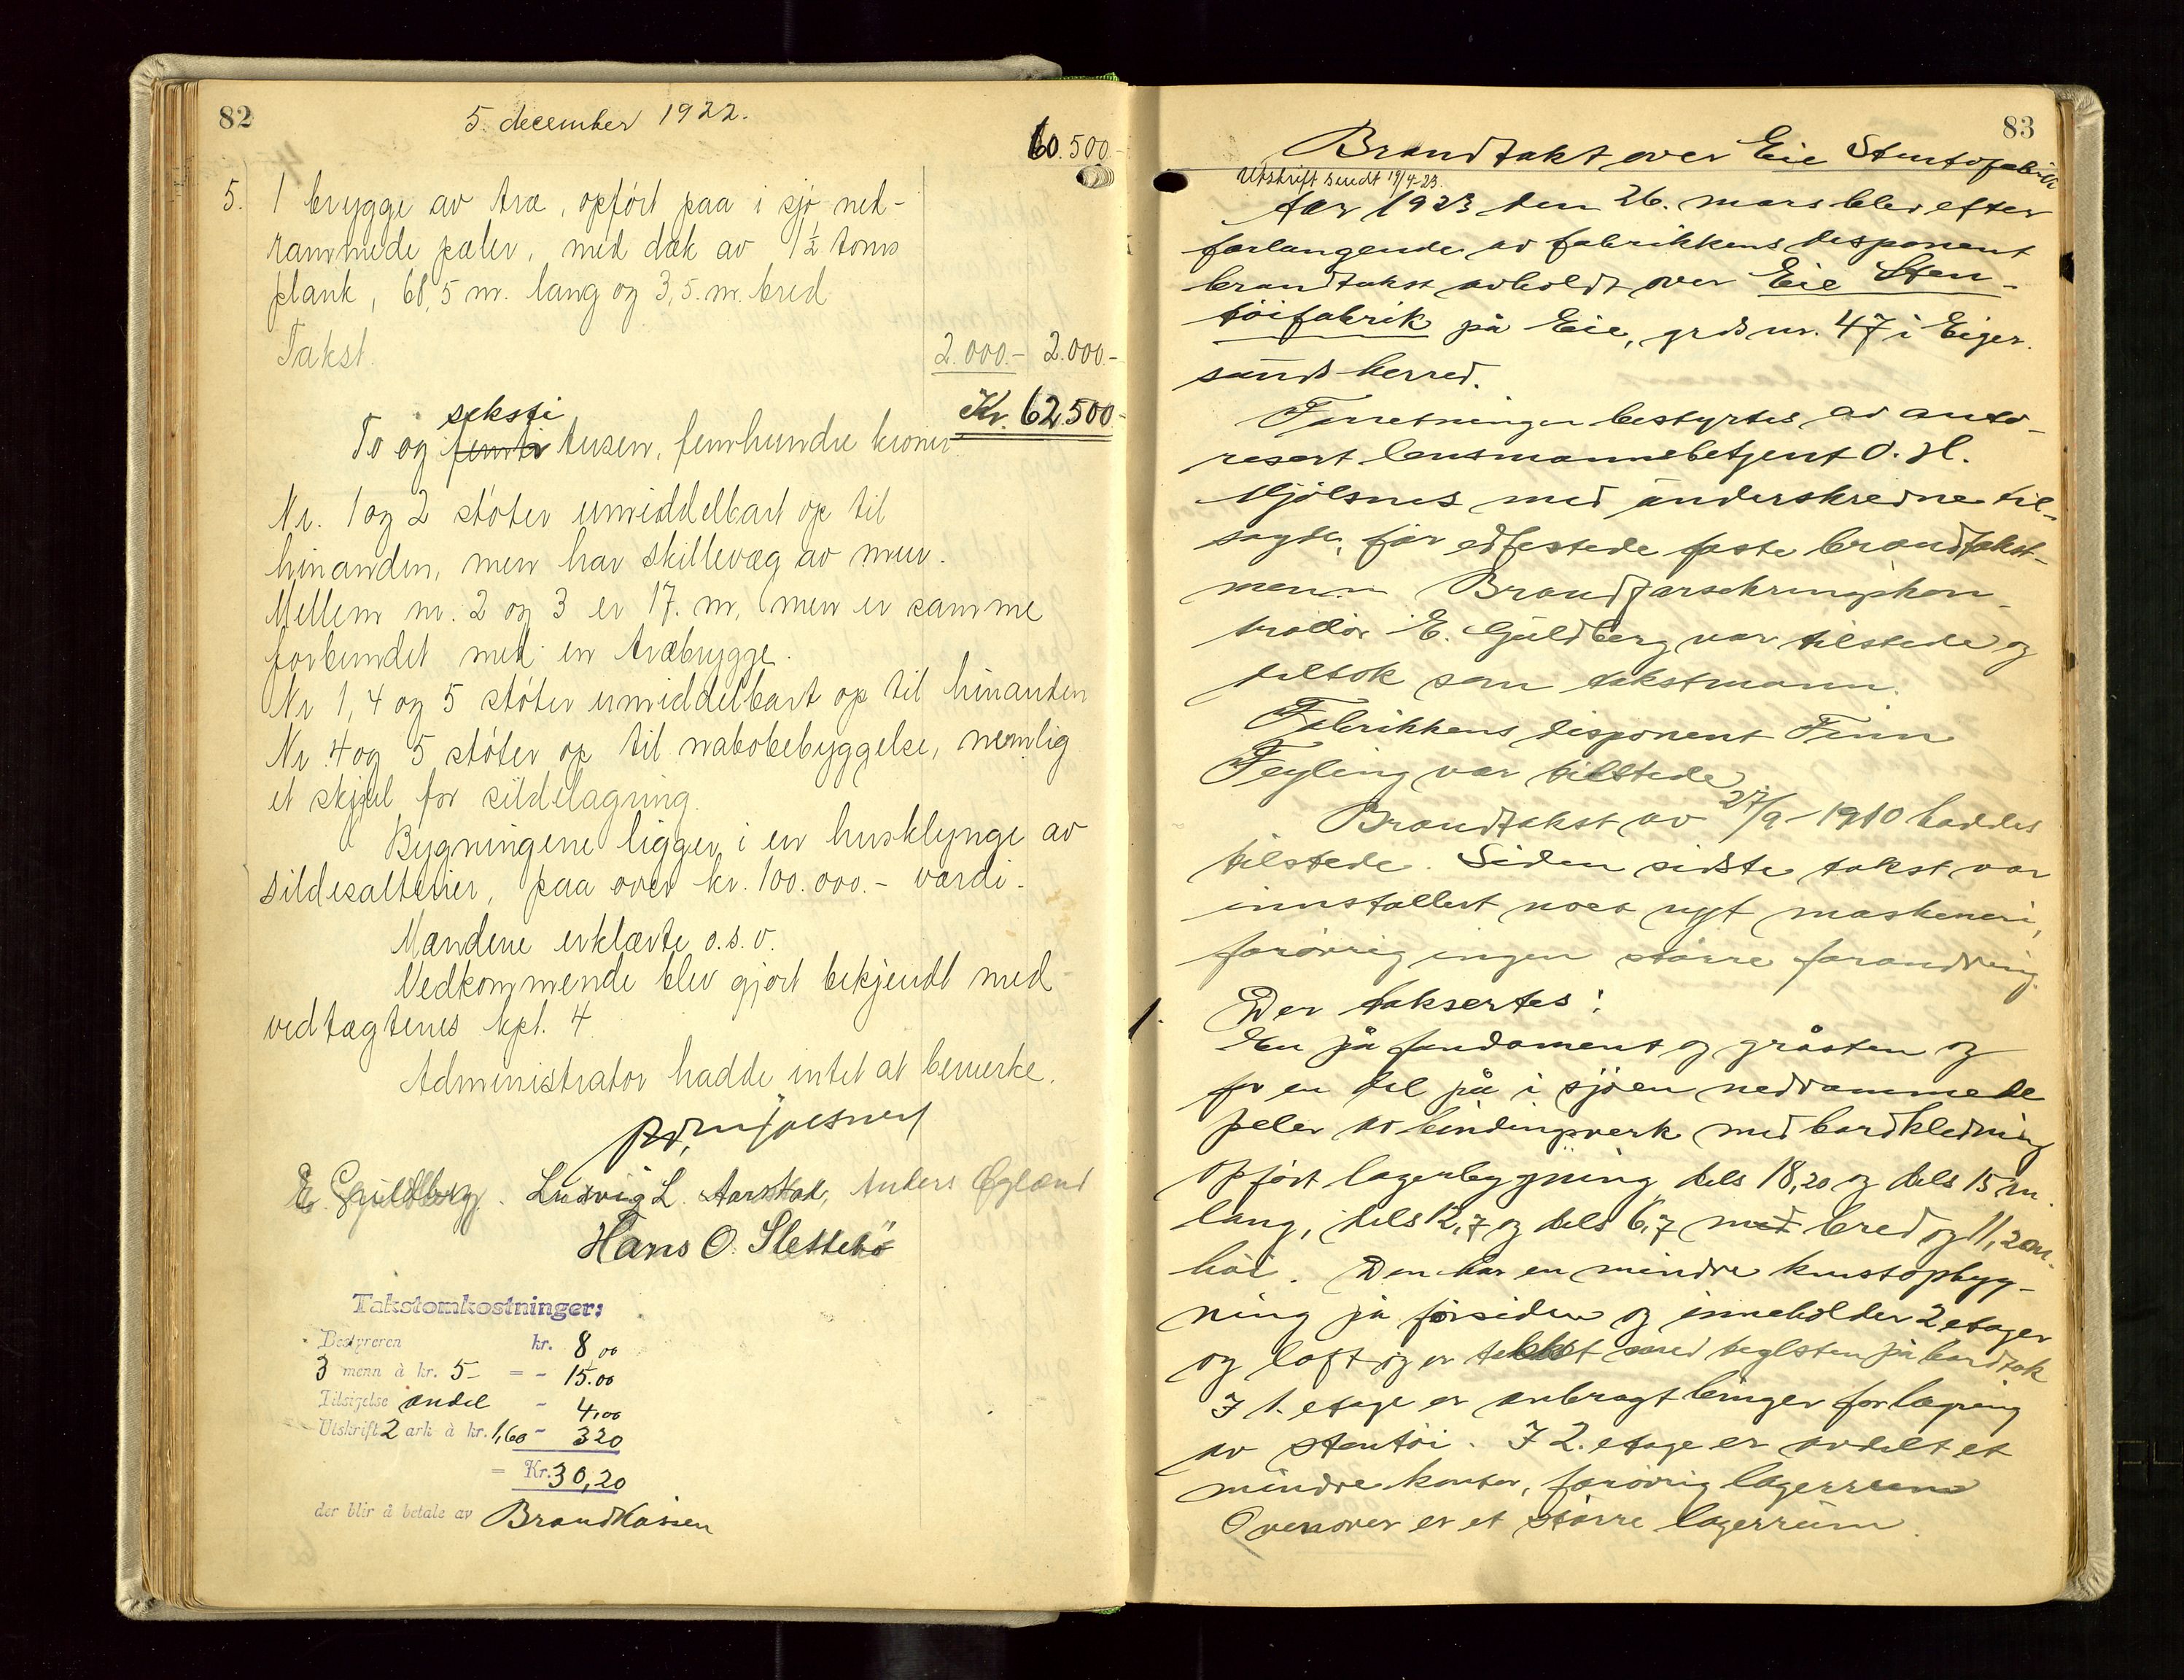 82
5. december 1922.
60.500.-
5. 1 brygge av træ, opført paa i sjø ned-
rammede pæler, med dæk av 1½ toms
plank, 68,5 m. lang og 3,5. m. bred
Takst. 2.000.- 2.000.-
Kr. 62.500.-
seksti
To og femti tusen, femhundre kroner
Nr. 1 og 2 støter umiddelbart op til
hinanden, men har skillevæg av mur.
Mellem nr. 2 og 3 er 17. m, men er samme
forbundet med en træbrygge.
Nr 1, 4 og 5 støter umiddelbart op til hinanden
Nr. 4 og 5 støter op til nabobebyggelse, nemlig
et skjul for sildelagring.
Bygningene ligger i en husklynge av
sildesalterier, paa over kr. 100.000.- værdi.
Mændene erklærte o.s.v.
Vedkommende blev gjort bekjendt med
vedtægtenes kpl. 4
Administrator hadde intet at bemerke.
E. Guldberg. Ludvig L. Aarstad, Anders Øgland
Hans O. Slettebø
Takstomkostninger:
Bestyreren kr. 8,00
3 menn à kr. 5- = - 15.00
Tilsigelse andel - 4,00
Utskrift 2 ark à kr. 1,60 - 320
= Kr. 30,20
der blir å betale av Brandkassen
83
Brandtakst over Eie Stentøifabrik
Utskrift sendt 19/4-23.
Aar 1923 den 26. mars blev efter
forlangende av fabrikkens disponent
brandtakst avholdt over Eie Sten-
tøifabrik på Eie, grds nr. 47 i Eiger-
sunds herred.
Forretningen bestyrtes av auto-
risert lensmannsbetjent O. H.
Mjølsnes med underskrevne til-
sagte, før edfestede faste brandtakst-
menn. Brandforsikringskon-
trollør E. Guldberg var tilstede og
deltok som takstmann.
Fabrikkens disponent Finn
Feyling var tilstede.
Brandtakst av 27/9-1910 haddes
tilstede. Siden sidste takst var
innstallert noe nyt maskineri,
forøvrig ingen større forandring.
Der taksertes:
1. En på fundament og gråsten og
for en del på i sjøen nedrammede
peler av bindingsverk med bordkledning
opført lagerbygning, dels 18,20 og dels 15 m.
lang, dels 12,7 og dels 6,7 med bred og 11,20 m.
høi. Den har en mindre kvistopbyg-
ning på forsiden og inneholder 2 etager
og loft og er tekket med teglsten på bordtak
I 1. etage er anbragt binger for lagring
av stentøi. I 2. etage er avdelt et
mindre kontor, forøvrig lagerrum
Ovenover er et større lagerrum.